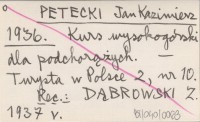 PETECKI Jan Kazimierz
1936. Kurs wysokogórski
dla podchorążych. —
Turysta w Polsce 2, nr 10.
Rec.: DĄBROWSKI Z.
1937 r.